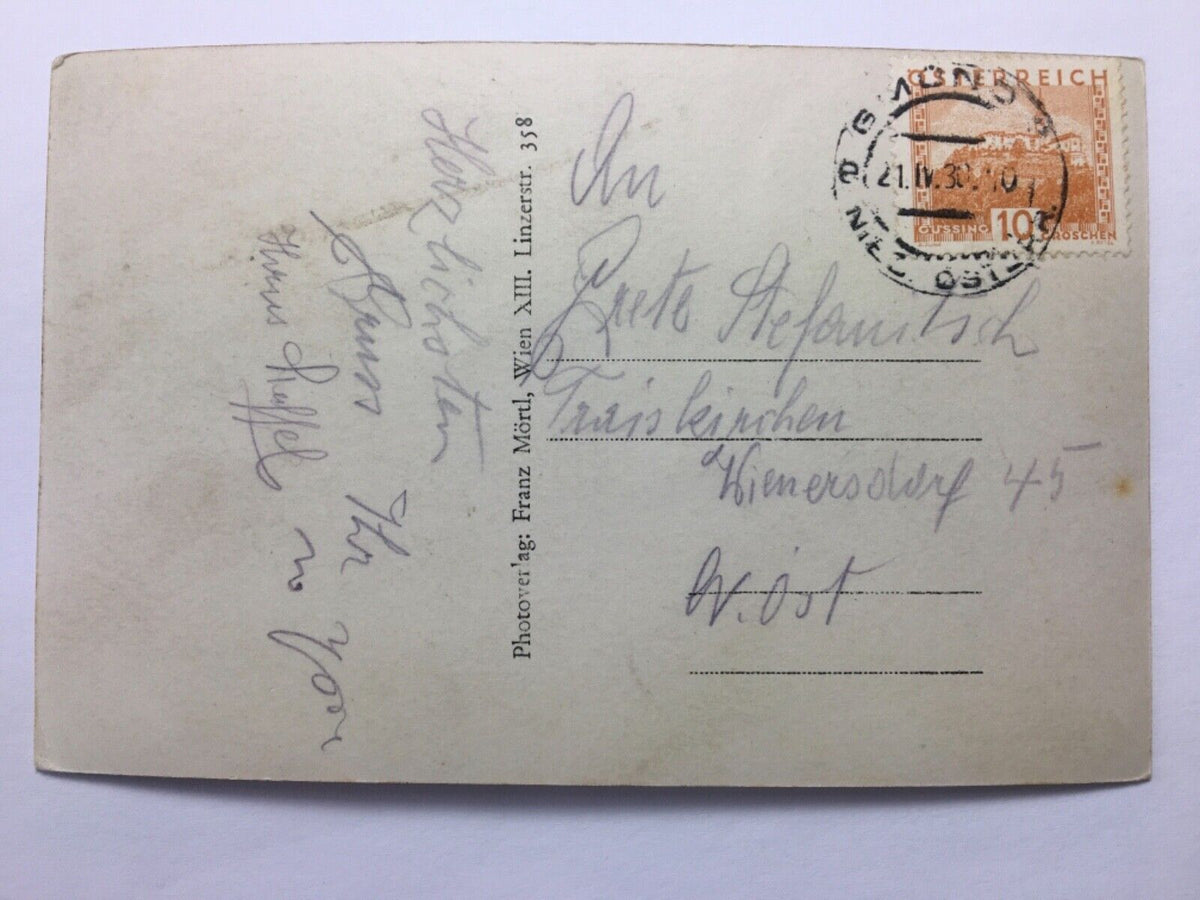 Herzlichsten
Gruss Ihr
Hans
Photoverlag: Franz Mörtl, Wien XIII. Linzerstr. 358
An
Grete Stefanitsch
Traiskirchen
Wienersdorf 45
N. Öst
ÖSTERREICH
GÜSSING 10 GROSCHEN
GMÜND
21.IV.30
NIED. ÖSTERR.